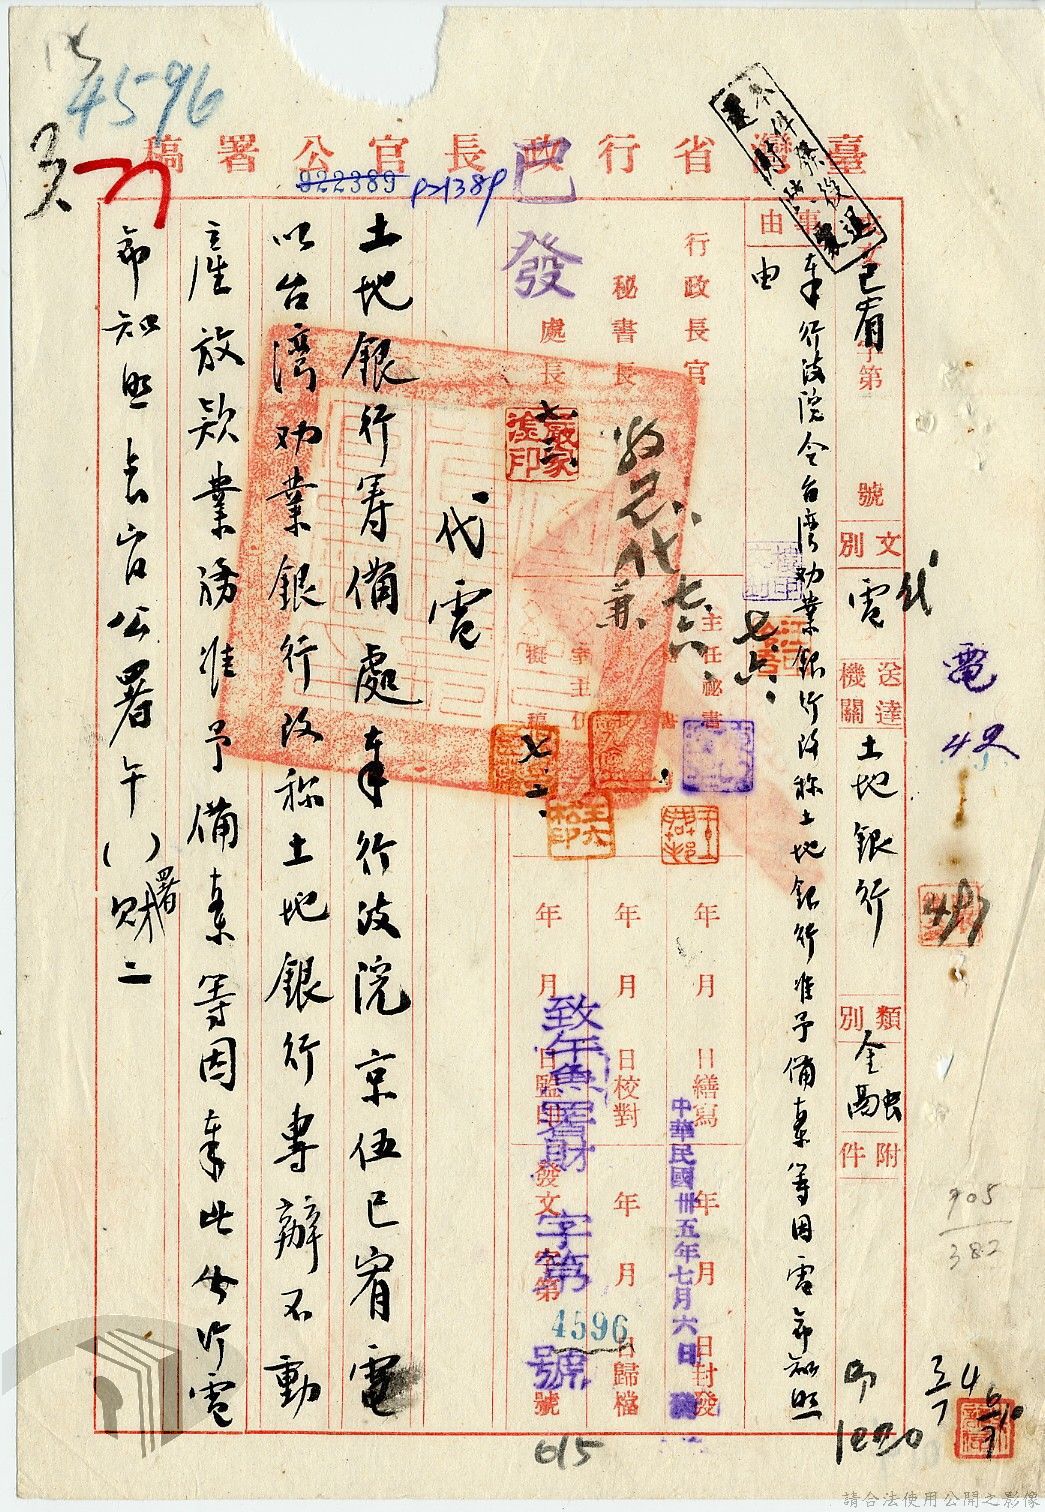 4596
臺灣省行政長官公署稿
922389
已發
巳宥
字第
號
文別
代電
送達機關
土地銀行
類別
金融
附件
事由
奉行政院令台湾劝業銀行改称土地銀行准予備案等因電希知照
由
行政長官
秘書長
處長
主任秘書
擬稿
七六
嚴家淦印
王六松印
年月日繕寫
年月日校對
年月日監印
年月日封發
年月日歸檔
發文字第號
中華民國卅五年七月六日
致午魚署財字第4596號
代電
土地銀行筹備處奉行政院京伍巳宥電
以台湾劝業銀行改称土地銀行專辦不動
產放款業務准予備案等因奉此合行電
希知照長官公署午()署財二
電
497
905
382
1020
615
請合法使用公開之影像